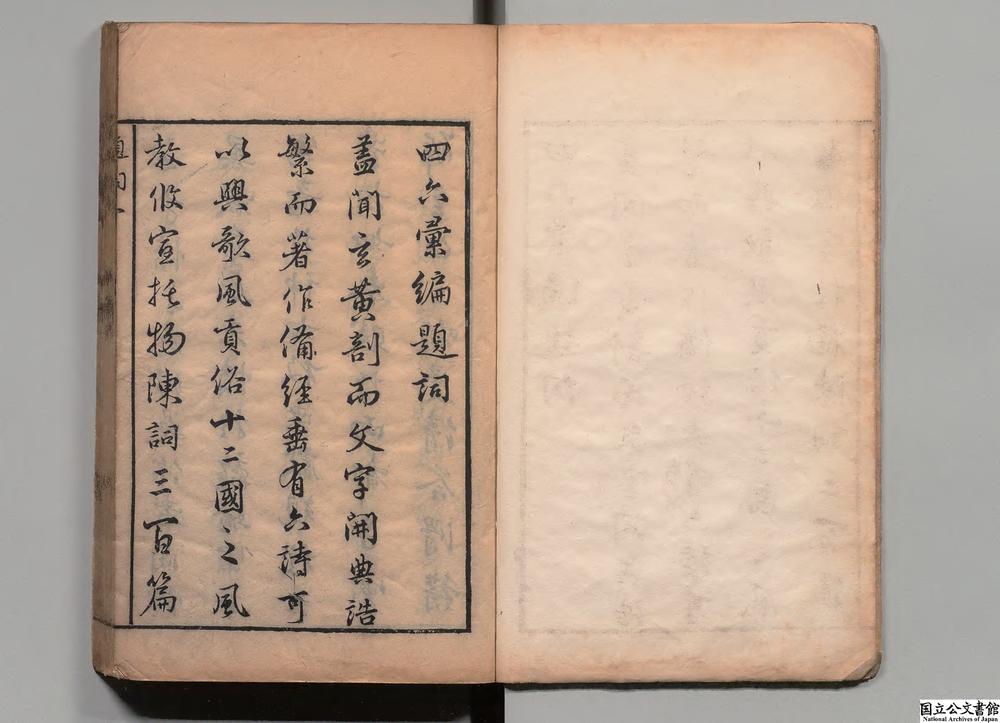 四六彙編題詞
蓋聞玄黃剖而文字開典誥
繁而著作備經垂有六詩可
以興歌風貢俗十二國之風
教攸宣托物陳詞三百篇
題詞一
国立公文書館
National Archives of Japan